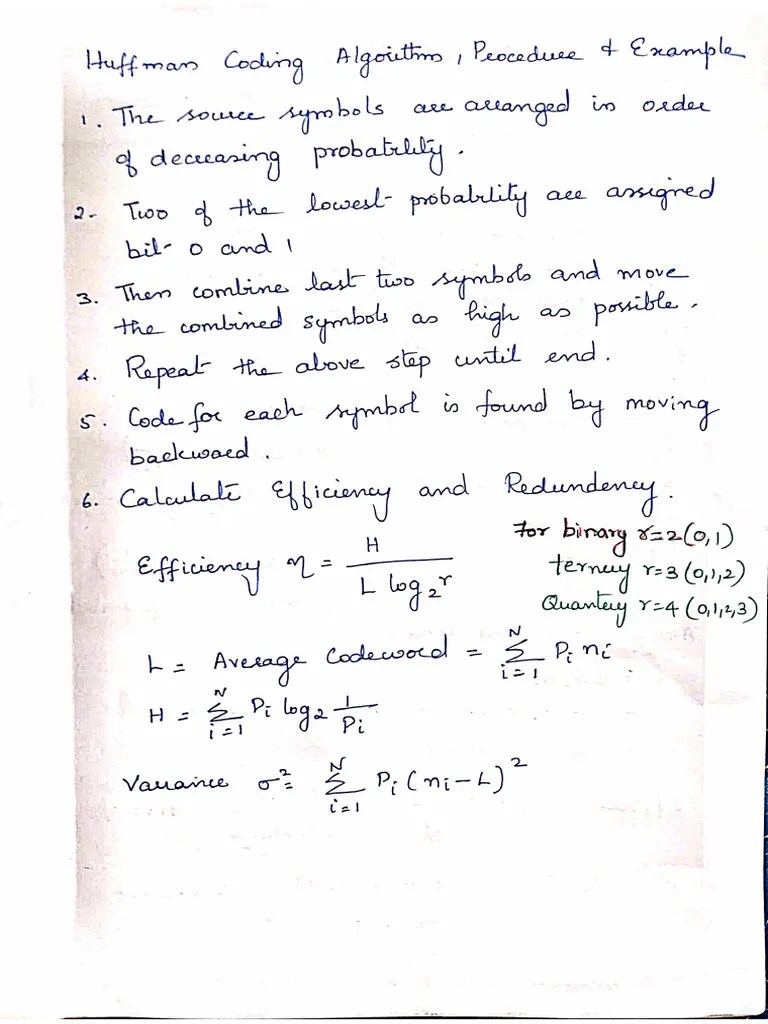 Huffman Coding Algorithm, Procedure & Example
1. The source symbols are arranged in order
of decreasing probability.
2- Two of the lowest probability are assigned
bit 0 and 1
3. Then combine last two symbols and move
the combined symbols as high as possible.
4. Repeat the above step until end.
5. Code for each symbol is found by moving
backward.
6. Calculate Efficiency and Redundency.
Efficiency η = H / L log₂ r
For binary r=2(0,1)
ternery r=3(0,1,2)
Quantery r=4(0,1,2,3)
L = Average Codeword = N Σ i=1 Pi ni
H = N Σ i=1 Pi log2 1/Pi
Variance σ² = N Σ i=1 Pi (ni-L)²